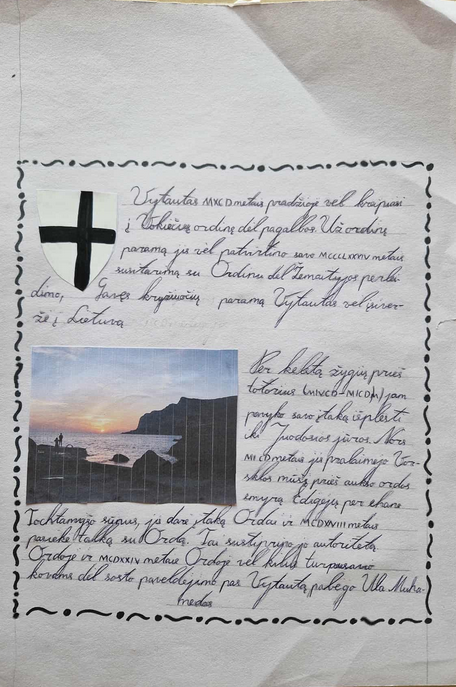 Vytautas MXCD metais pradžioje vėl kreipiasi
į Vokiečių ordiną dėl pagalbos. Už ordino
paramą jis vėl patvirtino savo MCCCLXXXIV metais
susitarimą su Ordinu dėl Žemaitijos perlei-
dimo, Gavęs kryžiuočių paramą Vytautas vėl įsiver-
žė į Lietuvą
Per keletą žygių prieš
totorius jam
pavyko savo įtaką išplėsti
iki Juodosios jūros. Nors
metais jis pralaimėjo Vor-
sklos mūšį prieš aukso ordos
emyrą Edigėjų, per chano
Tochtamyšo sūnus, jo darė įtaką Ordai ir MCDXVIII metais
pasiekė taiką su Orda. Tai sustiprino jo autoritetą
Ordoje ir MCDXXIV metais Ordoje vėl kilus tarpusavio
kovoms dėl sosto paveldėjimo pas Vytautą pabėgo Ula Muha-
medas